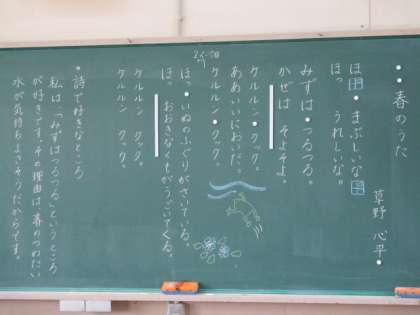 春のうた
草野 心平
ほっ まぶしいな。
ほっ うれしいな。
みずは つるつる。
かぜは そよそよ。
ケルルン クック。
ああいいにおいだ。
ケルルン クック。
ほっ いぬのふぐりがさいている。
ほっ おおきなくもがうごいてくる。
ケルルン クック。
ケルルン クック。
・詩で好きなところ
私は、「みずはつるつる」というところ
が好きです。その理由は、春のつめたい
水が気持ちよさそうだからです。